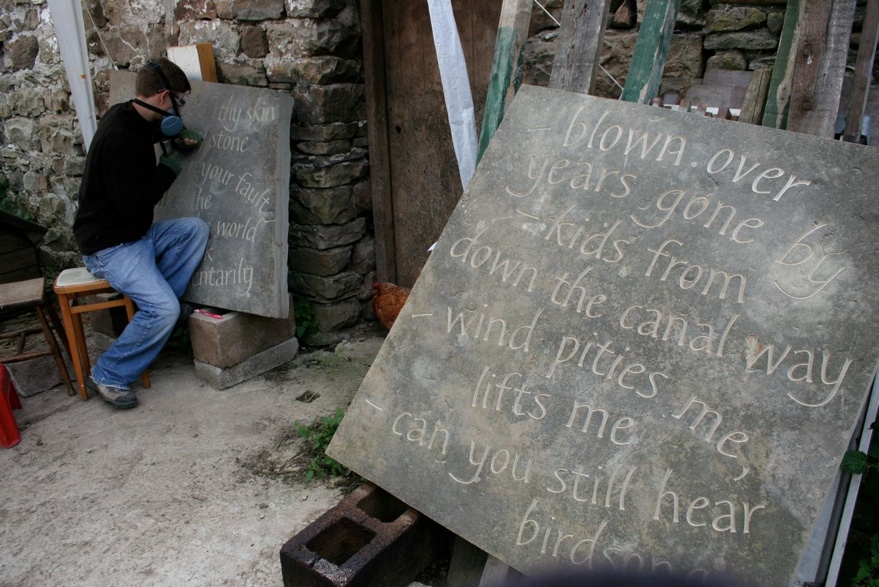 thy skin
stone
your fault
the
the world
- blown over
years gone by
- kids from
down the canal way
- wind pities me,
lifts me
- can you still hear